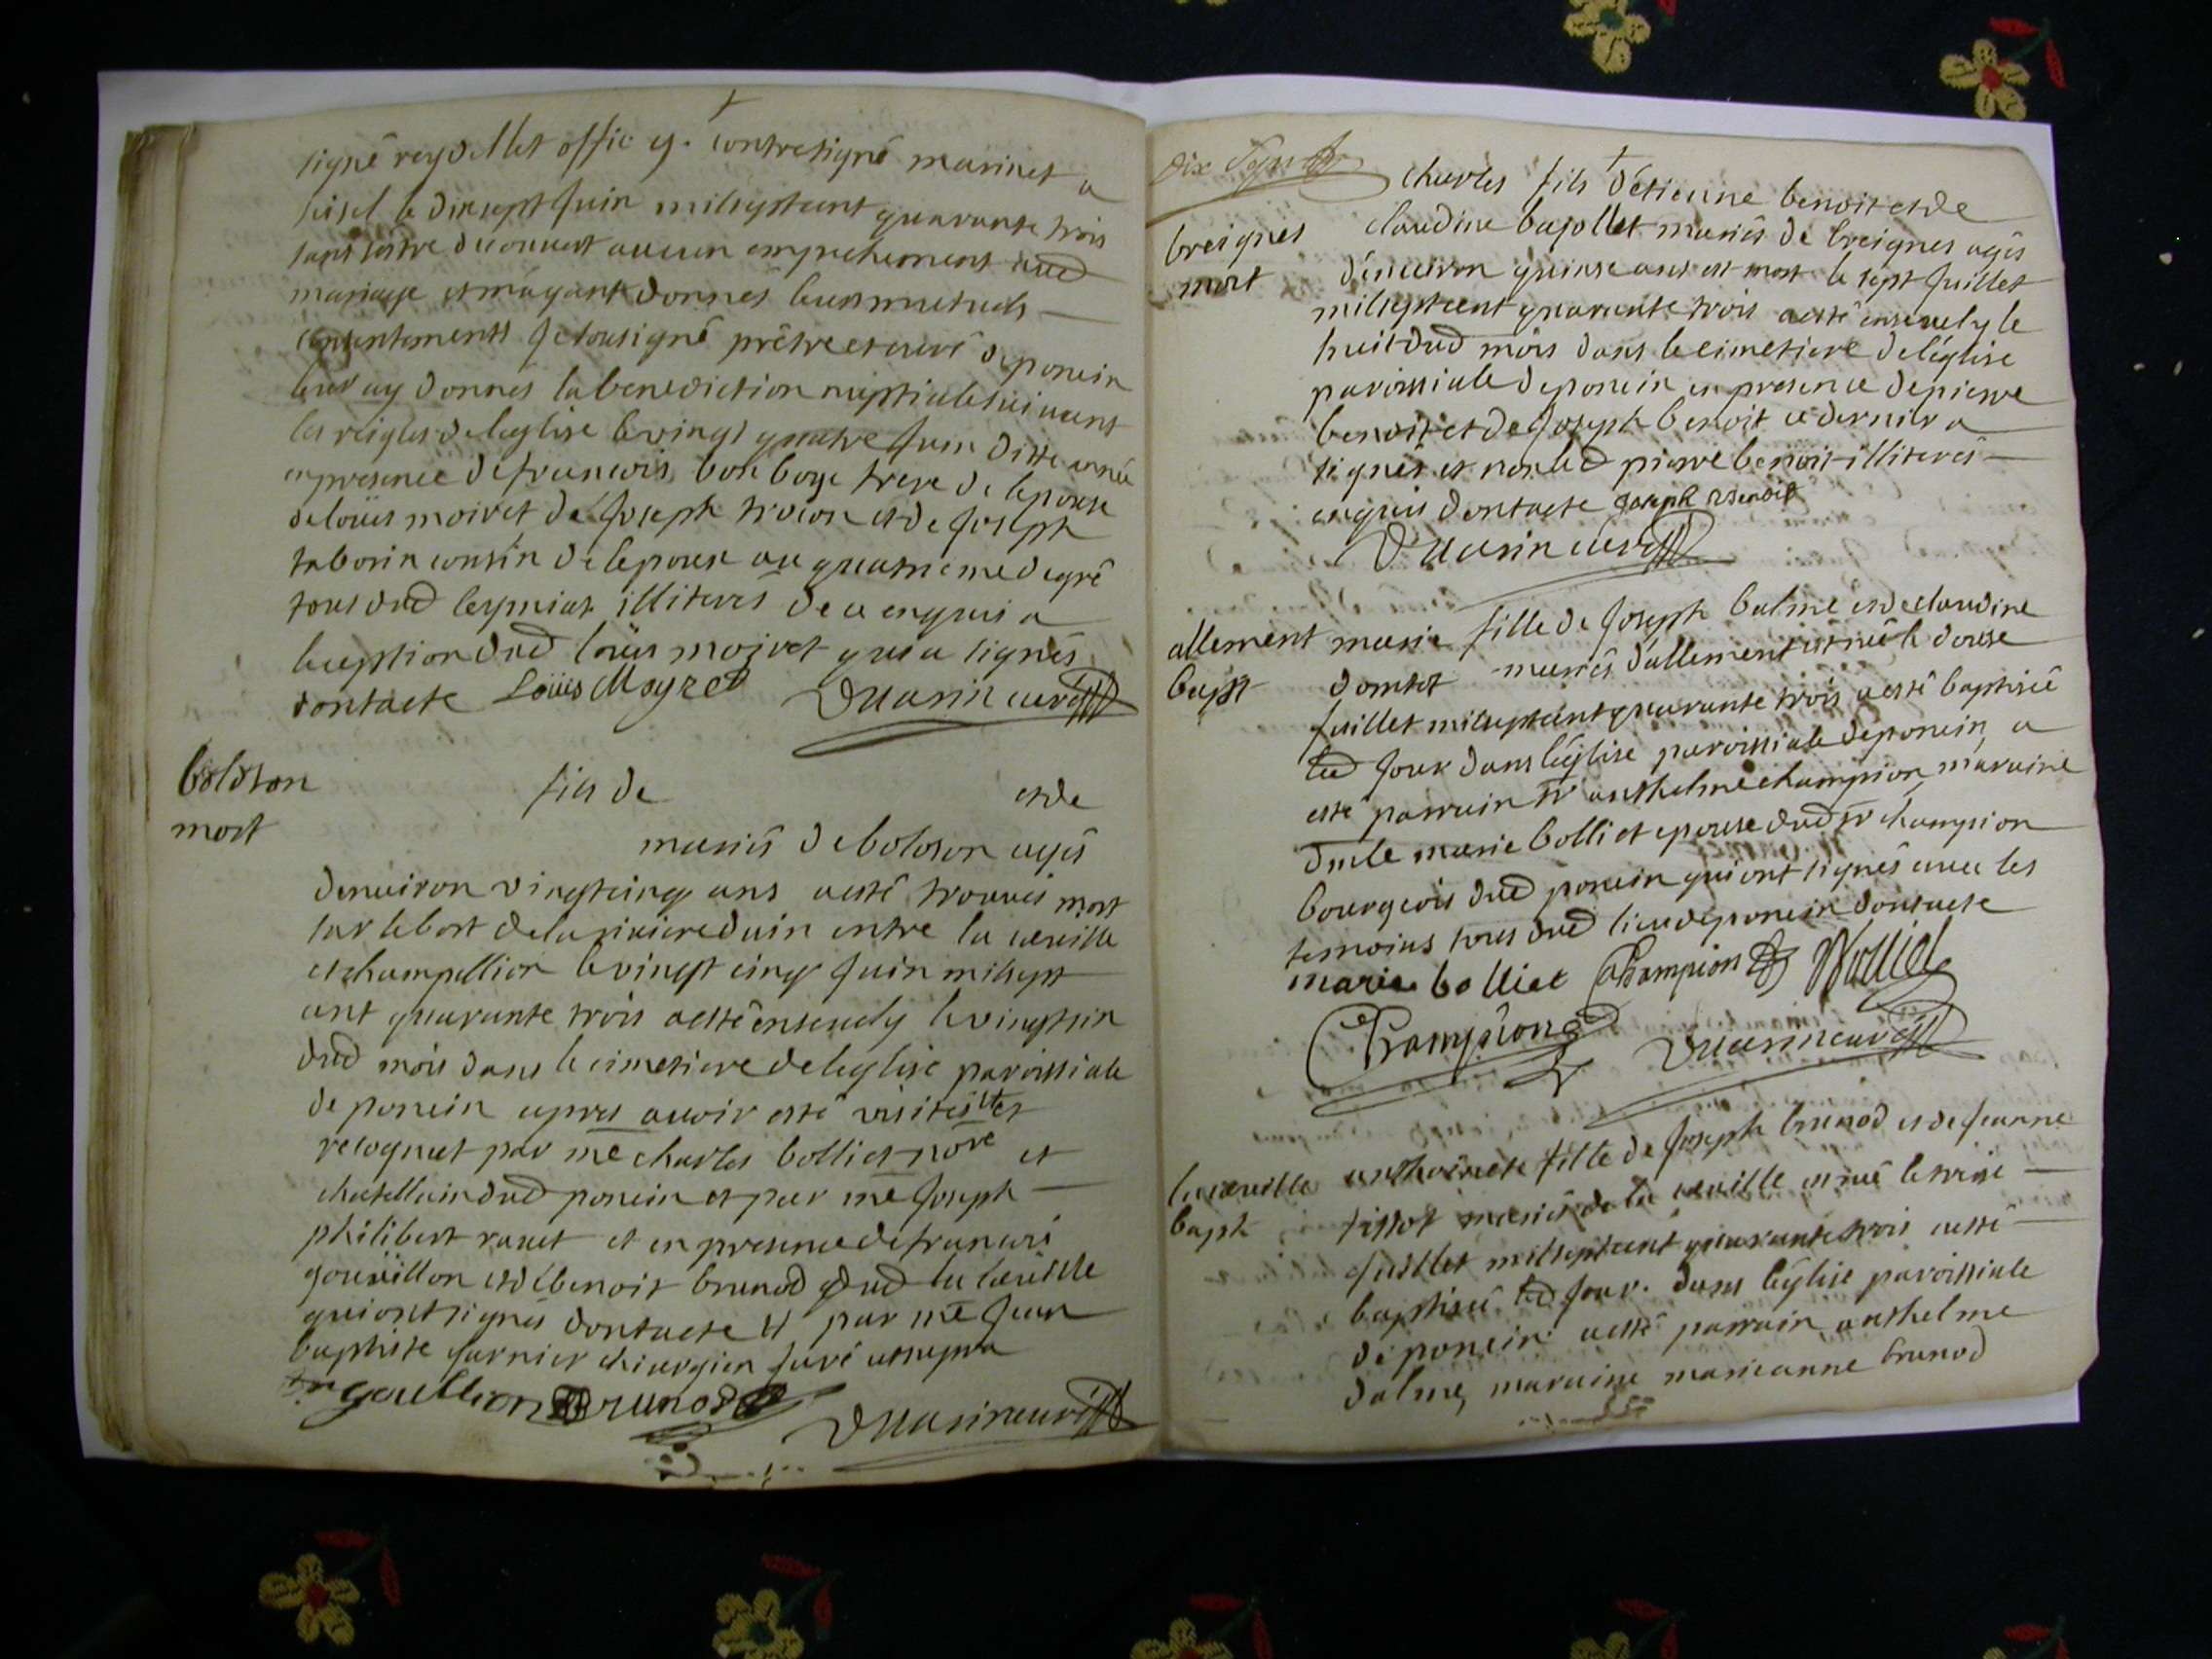 signé reydellet offic g. contresigné marinet a
seisel le dixsept juin milseptcent quarante trois
sans sestre decouvert aucun empechement aud
mariage et mayant donnés leurs mutuels
consentements je sousigné prêtre et curé de poncin
leur ay donnés la benediction nuptiale suivant
les reigles de leglise le vingt quatre juin ditte année
en presence de francois frere de lepouse
de loüis moiret de joseph et de joseph
taborin cousin de lepoux au quatrieme degré
tous dud illiterés de ce enquis a
lexception dud loüis moiret qui a signés
dontacte Loüis Moyret curé
boloson
mort
fils de et de
mariés de boloson agés
denuiron vingtcinq ans aesté trouvés mort
sur le bort de la riviere dain entre la cueille
et champellion le vingt cinq juin milsept
cent quarante trois aesté ensevely le vingtsix
dud mois dans le cimetiere de leglise paroissiale
de poncin apres avoir esté visités et
recognut par me charles bolliet nore et
chatellain dud poncin et par me joseph
philibert ravet et en presence de francois
gouuillon et de benoit brunod dud la cueille
qui ont signés dontacte et par me jean
baptiste garnier chiurgien juré
goullion Brunod curé
dix
+
charles fils d'etienne benoit et de
breignes
mort
claudine bajollet mariés de breignes agés
d'enuiron quinze ans est mort le sept juillet
milseptcent quarante trois aesté ensevely le
huit dud mois dans le cimetiere de léglise
paroissiale de poncin en presence de pierre
benoit et de joseph benoit ce dernier a
signés et non led pierre benoit illiterés
enquis dontacte Joseph Benoit
curé
allement
bapt
marie fille de joseph balme et de claudine
domtet mariés d'allement est née le douse
juillet milseptcent quarante trois aesté baptisée
led jour dans léglise paroissiale de poncin, a
esté parrain sr anthelme champion, maraine
dmlle marie bolliet epouse dud sr champion
bourgeois dud poncin qui ont signés avec les
temoins tous dud lieu de poncin dontacte
marie bolliet Champion Bolliet
Champion curé
la cueille
bapt
anthoinete fille de joseph brunod et de jeanne
tissot mariés de la cueille est née le treise
juillet milseptcent quarante trois aesté
baptisée led jour. dans léglise paroissiale
de poncin aesté parrain anthelme
dalme, maraine marieanne brunod